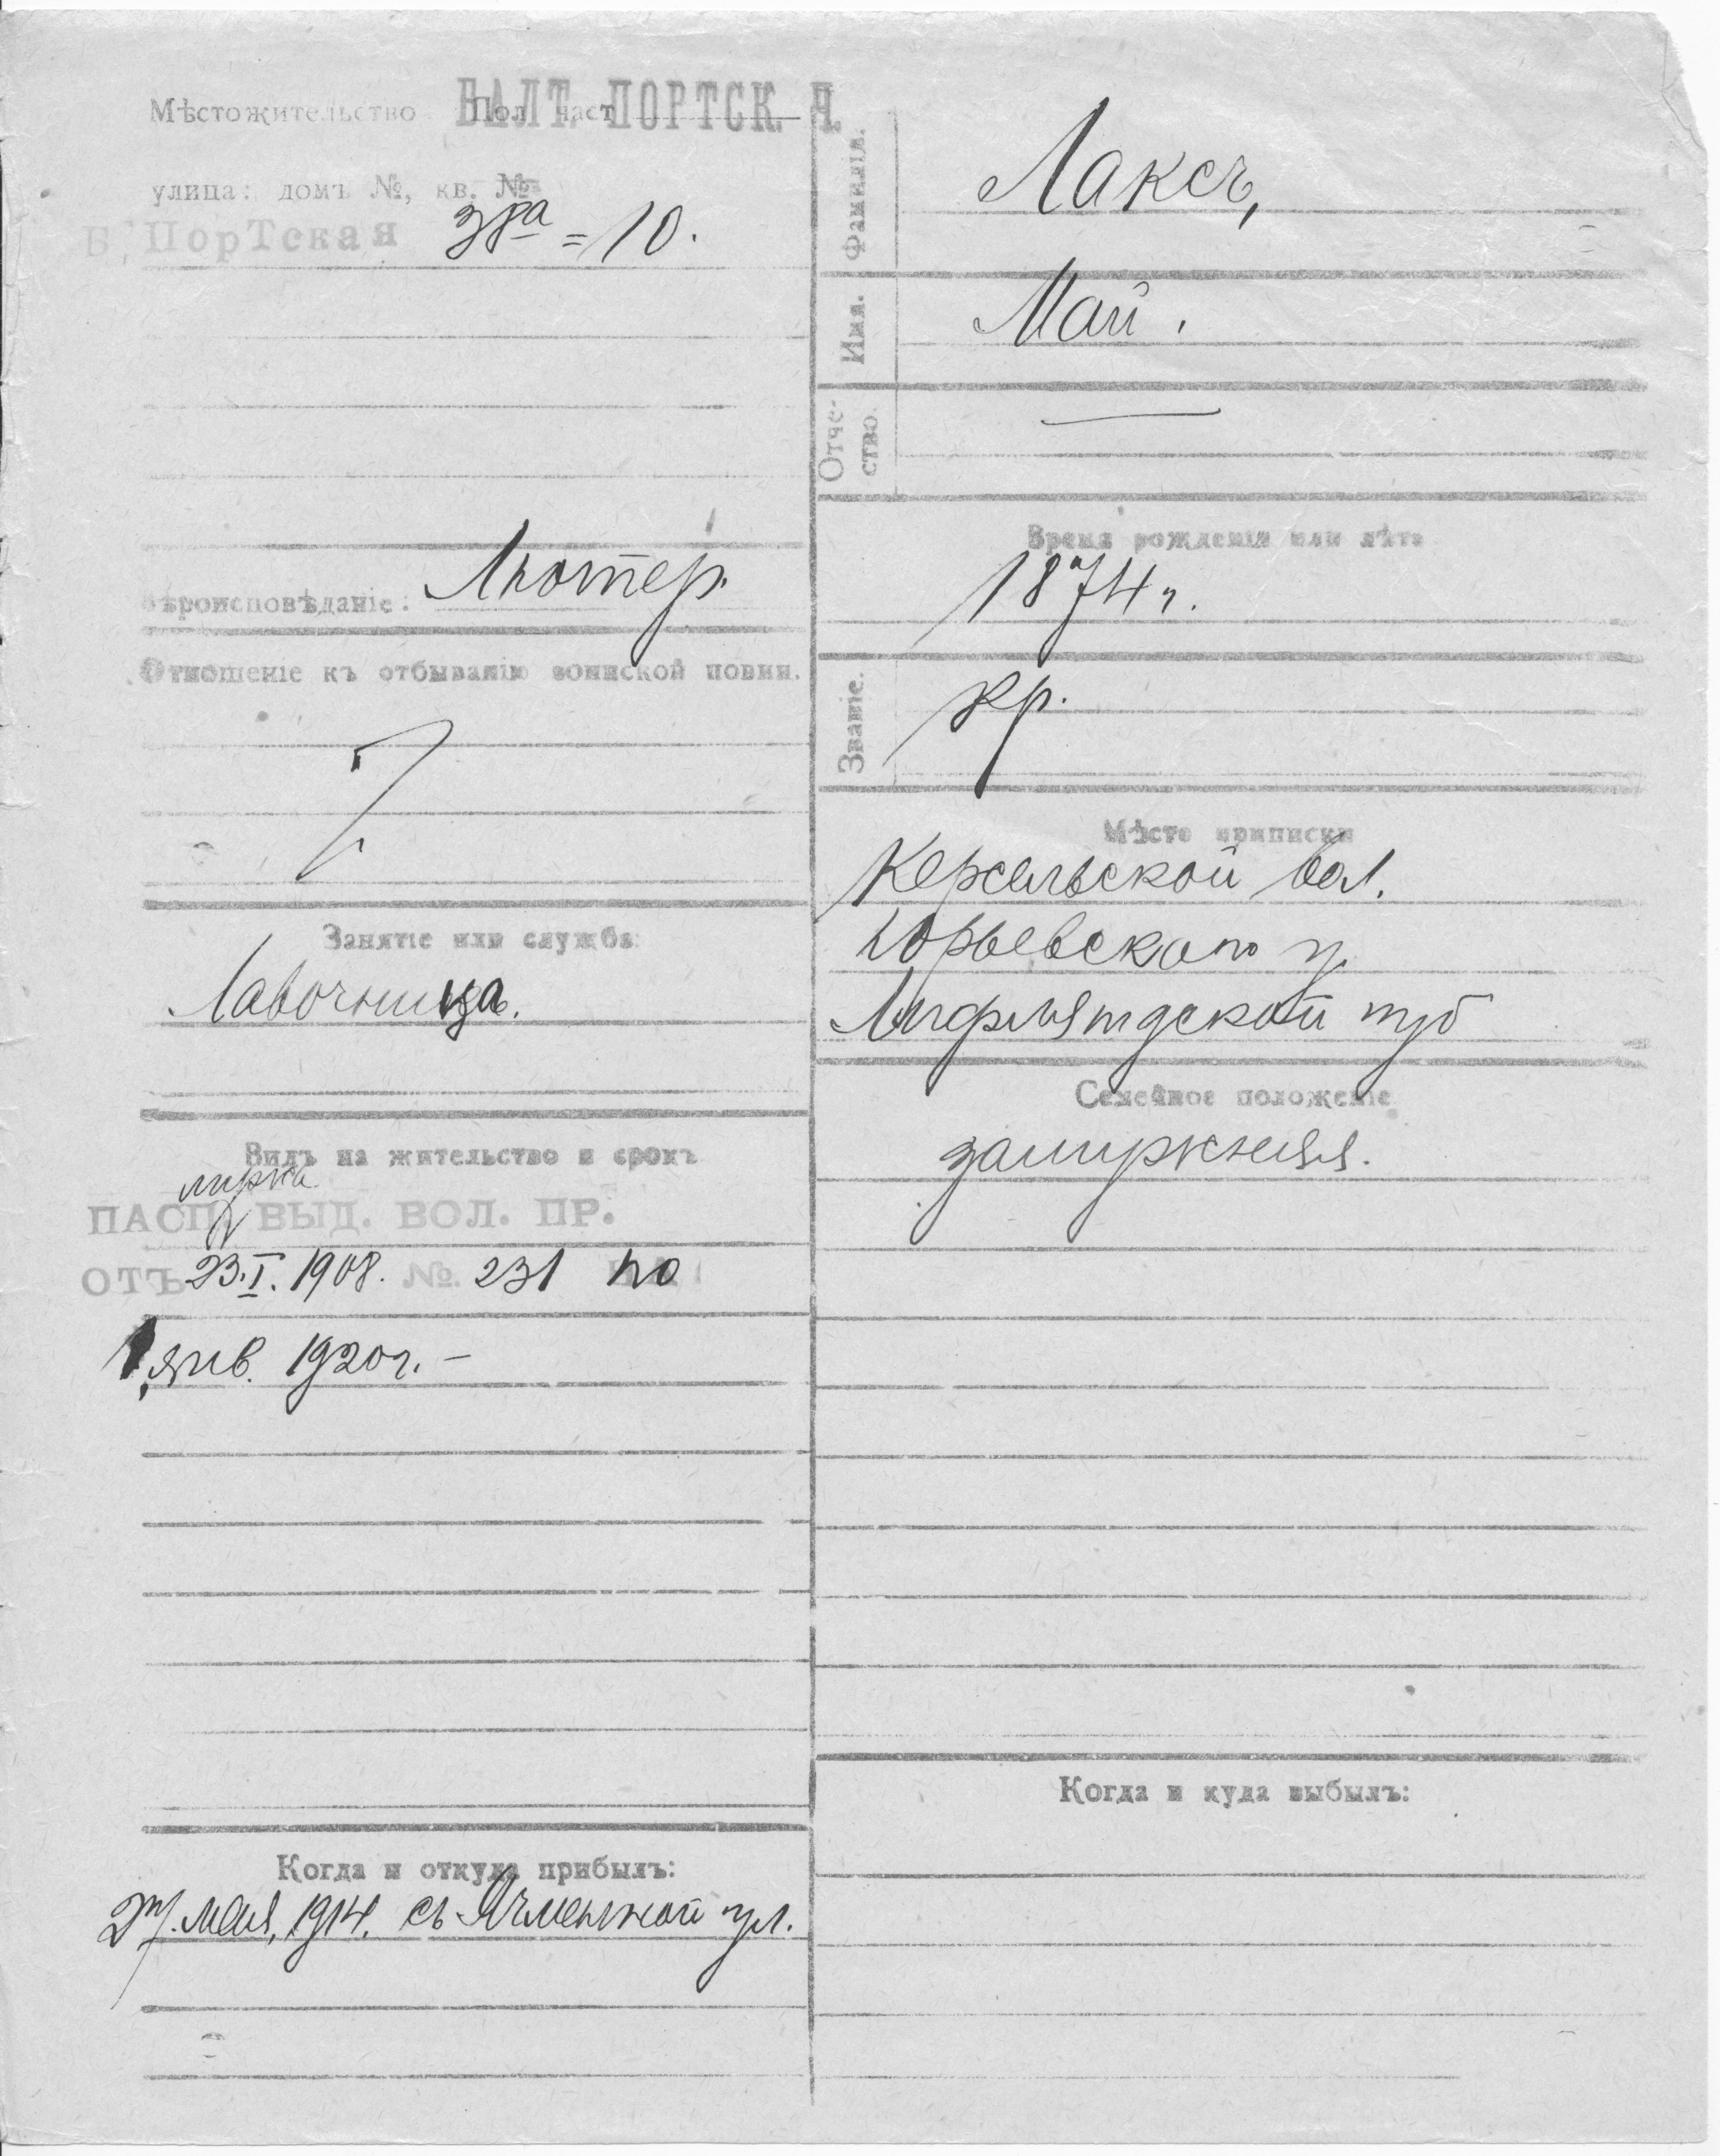 Мѣстожительство Пол част БАЛТ. ПОРТСК. Ч.
улица: домъ №, кв. №
Б. ПорТская 38а = 10.
Вѣроисповѣданіе: Лютер.
Отношеніе къ отбыванію воинской повин.
Занятіе или служба:
Лавочница.
Видъ на жительство и срокъ
ПАСП. ВЫД. ВОЛ. ПР.
ОТЪ 23.I.1908. №. 231 по
1 янв. 1920 г. –
Когда и откуда прибылъ:
27. мая, 1914. съ Ячменной ул.
Фамилія. Лаксъ,
Имя. Май.
Отче-
ство. —
Время рожденія или лѣта
1874 г.
Званіе. кр.
Мѣсто приписки
Керсельской вол.
Юрьевскаго у.
Лифляндской губ
Семейное положеніе
замужняя.
Когда и куда выбылъ: